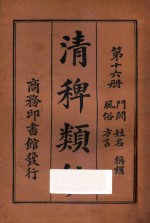 第十六册
門閥 姓名 稱謂
風俗 方言
清稗類
商務印書館發行